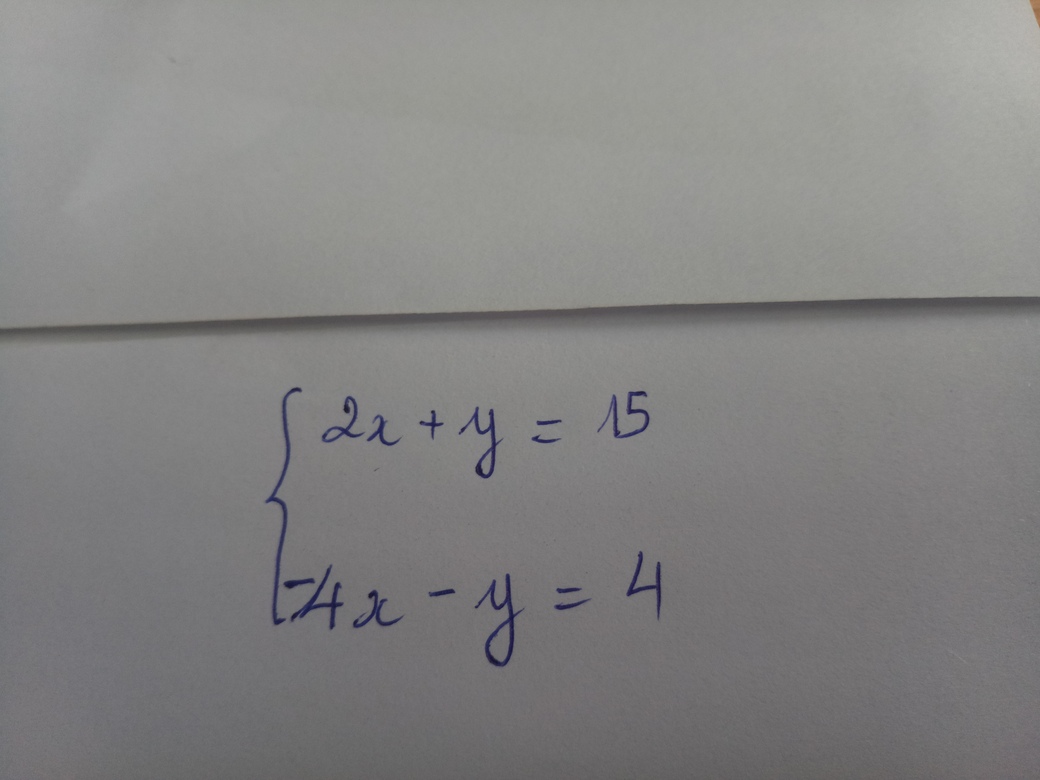 2x + y = 15
-4x - y = 4